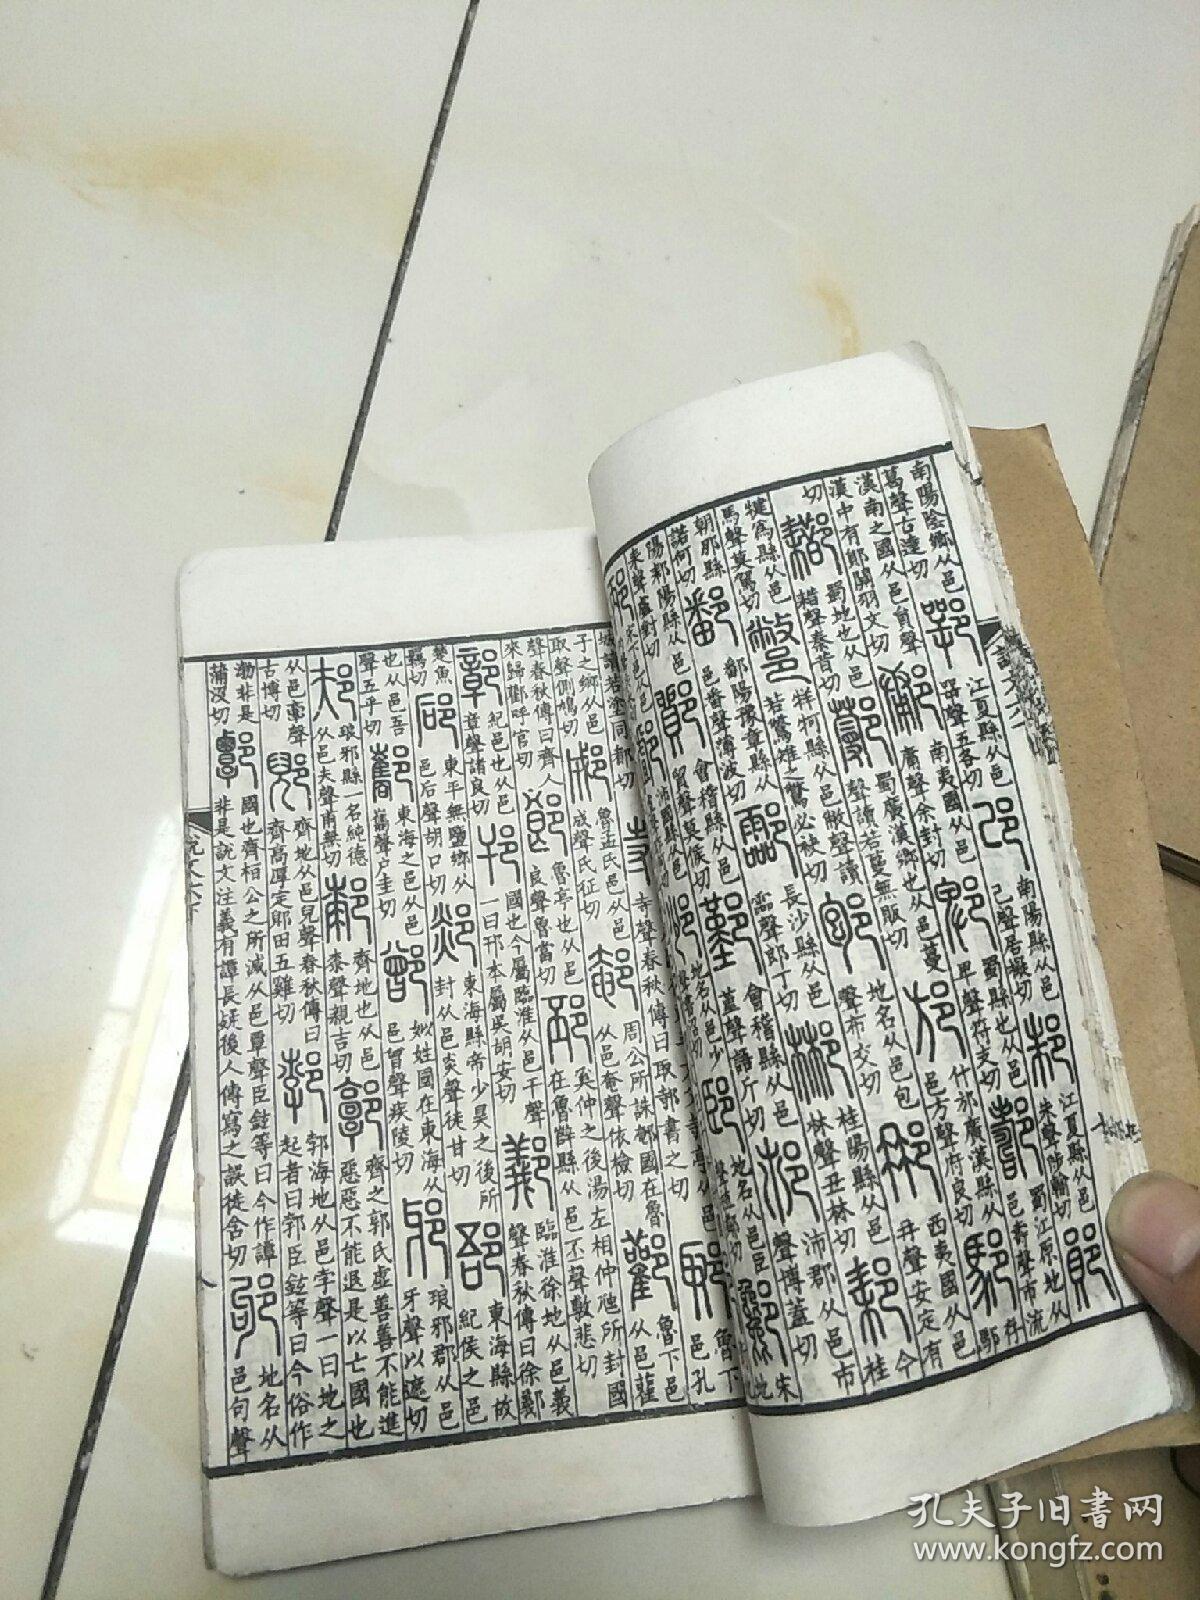 南陽陰鄉从邑葛聲古達切 鄂 江夏縣从邑咢聲五各切 𨙸 南陽縣从邑己聲居擬切 邾 江夏縣从邑朱聲陟輸切 鄖
漢南之國从邑員聲漢中有鄖關羽文切 鄘 南夷國从邑庸聲余封切 郫 蜀縣也从邑卑聲符支切 蜀江原地从邑壽聲市流
切 蜀地也从邑耤聲秦昔切 蜀廣漢鄉也从邑蔓聲讀若蔓無販切 邡 什邡廣漢縣从邑方聲府良切 存
犍爲縣从邑馬聲莫駕切 鄨 牂牁縣从邑敝聲讀若鷩雉之鷩必袂切 地名从邑包聲布交切 西夷國从邑冄聲安定有
朝那縣諾何切 鄱 鄱陽豫章縣从邑番聲薄波切 酃 長沙縣从邑霝聲郎丁切 郴 桂陽縣从邑林聲丑林切 今桂
陽耒陽縣从邑耒聲盧對切 鄮 會稽縣从邑貿聲莫候切 鄞 會稽縣从邑堇聲語斤切 沛郡从邑巿聲博蓋切 宋
郰 魯下邑孔
子之鄉从邑取聲側鳩切 郕 魯孟氏邑从邑成聲氏征切 周公所誅郁國在魯从邑奄聲依檢切 酄 魯下邑从邑雚
聲春秋傳曰齊人來歸酄呼官切 郎 魯亭也从邑良聲魯當切 邳 奚仲之後湯左相仲虺所封國在魯辥縣从邑丕聲敷悲切
鄣 紀邑也从邑章聲諸良切 邗 國也今屬臨淮从邑干聲一曰邗本屬吳胡安切 䣡 臨淮徐地从邑義聲春秋傳曰徐䣡
楚魚羈切 郈 東平無鹽鄉从邑后聲胡口切 郯 東海縣帝少昊之後所封从邑炎聲徒甘切 郚 東海縣故紀侯之邑
也从邑吾聲五乎切 酅 東海之邑从邑巂聲戶圭切 鄫 姒姓國在東海从邑曾聲疾陵切 邪 琅邪郡从邑牙聲以遮切
邞 琅邪縣一名純德从邑夫聲甫無切 䣛 齊地也从邑桼聲親吉切 郭 齊之郭氏虛善善不能進惡惡不能退是以亡國也
从邑𩫏聲古博切 郳 齊地从邑兒聲春秋傳曰齊高厚定郳田五雞切 郣 郣海地从邑孛聲一曰地之起者曰郣臣鉉等曰今俗作
渤非是蒲沒切 國也齊桓公之所滅从邑覃聲臣鉉等曰今作譚非是說文注義有譚長疑後人傳寫之誤徒含切 地名从邑句聲
說文六下
孔夫子旧书网
www.kongfz.com